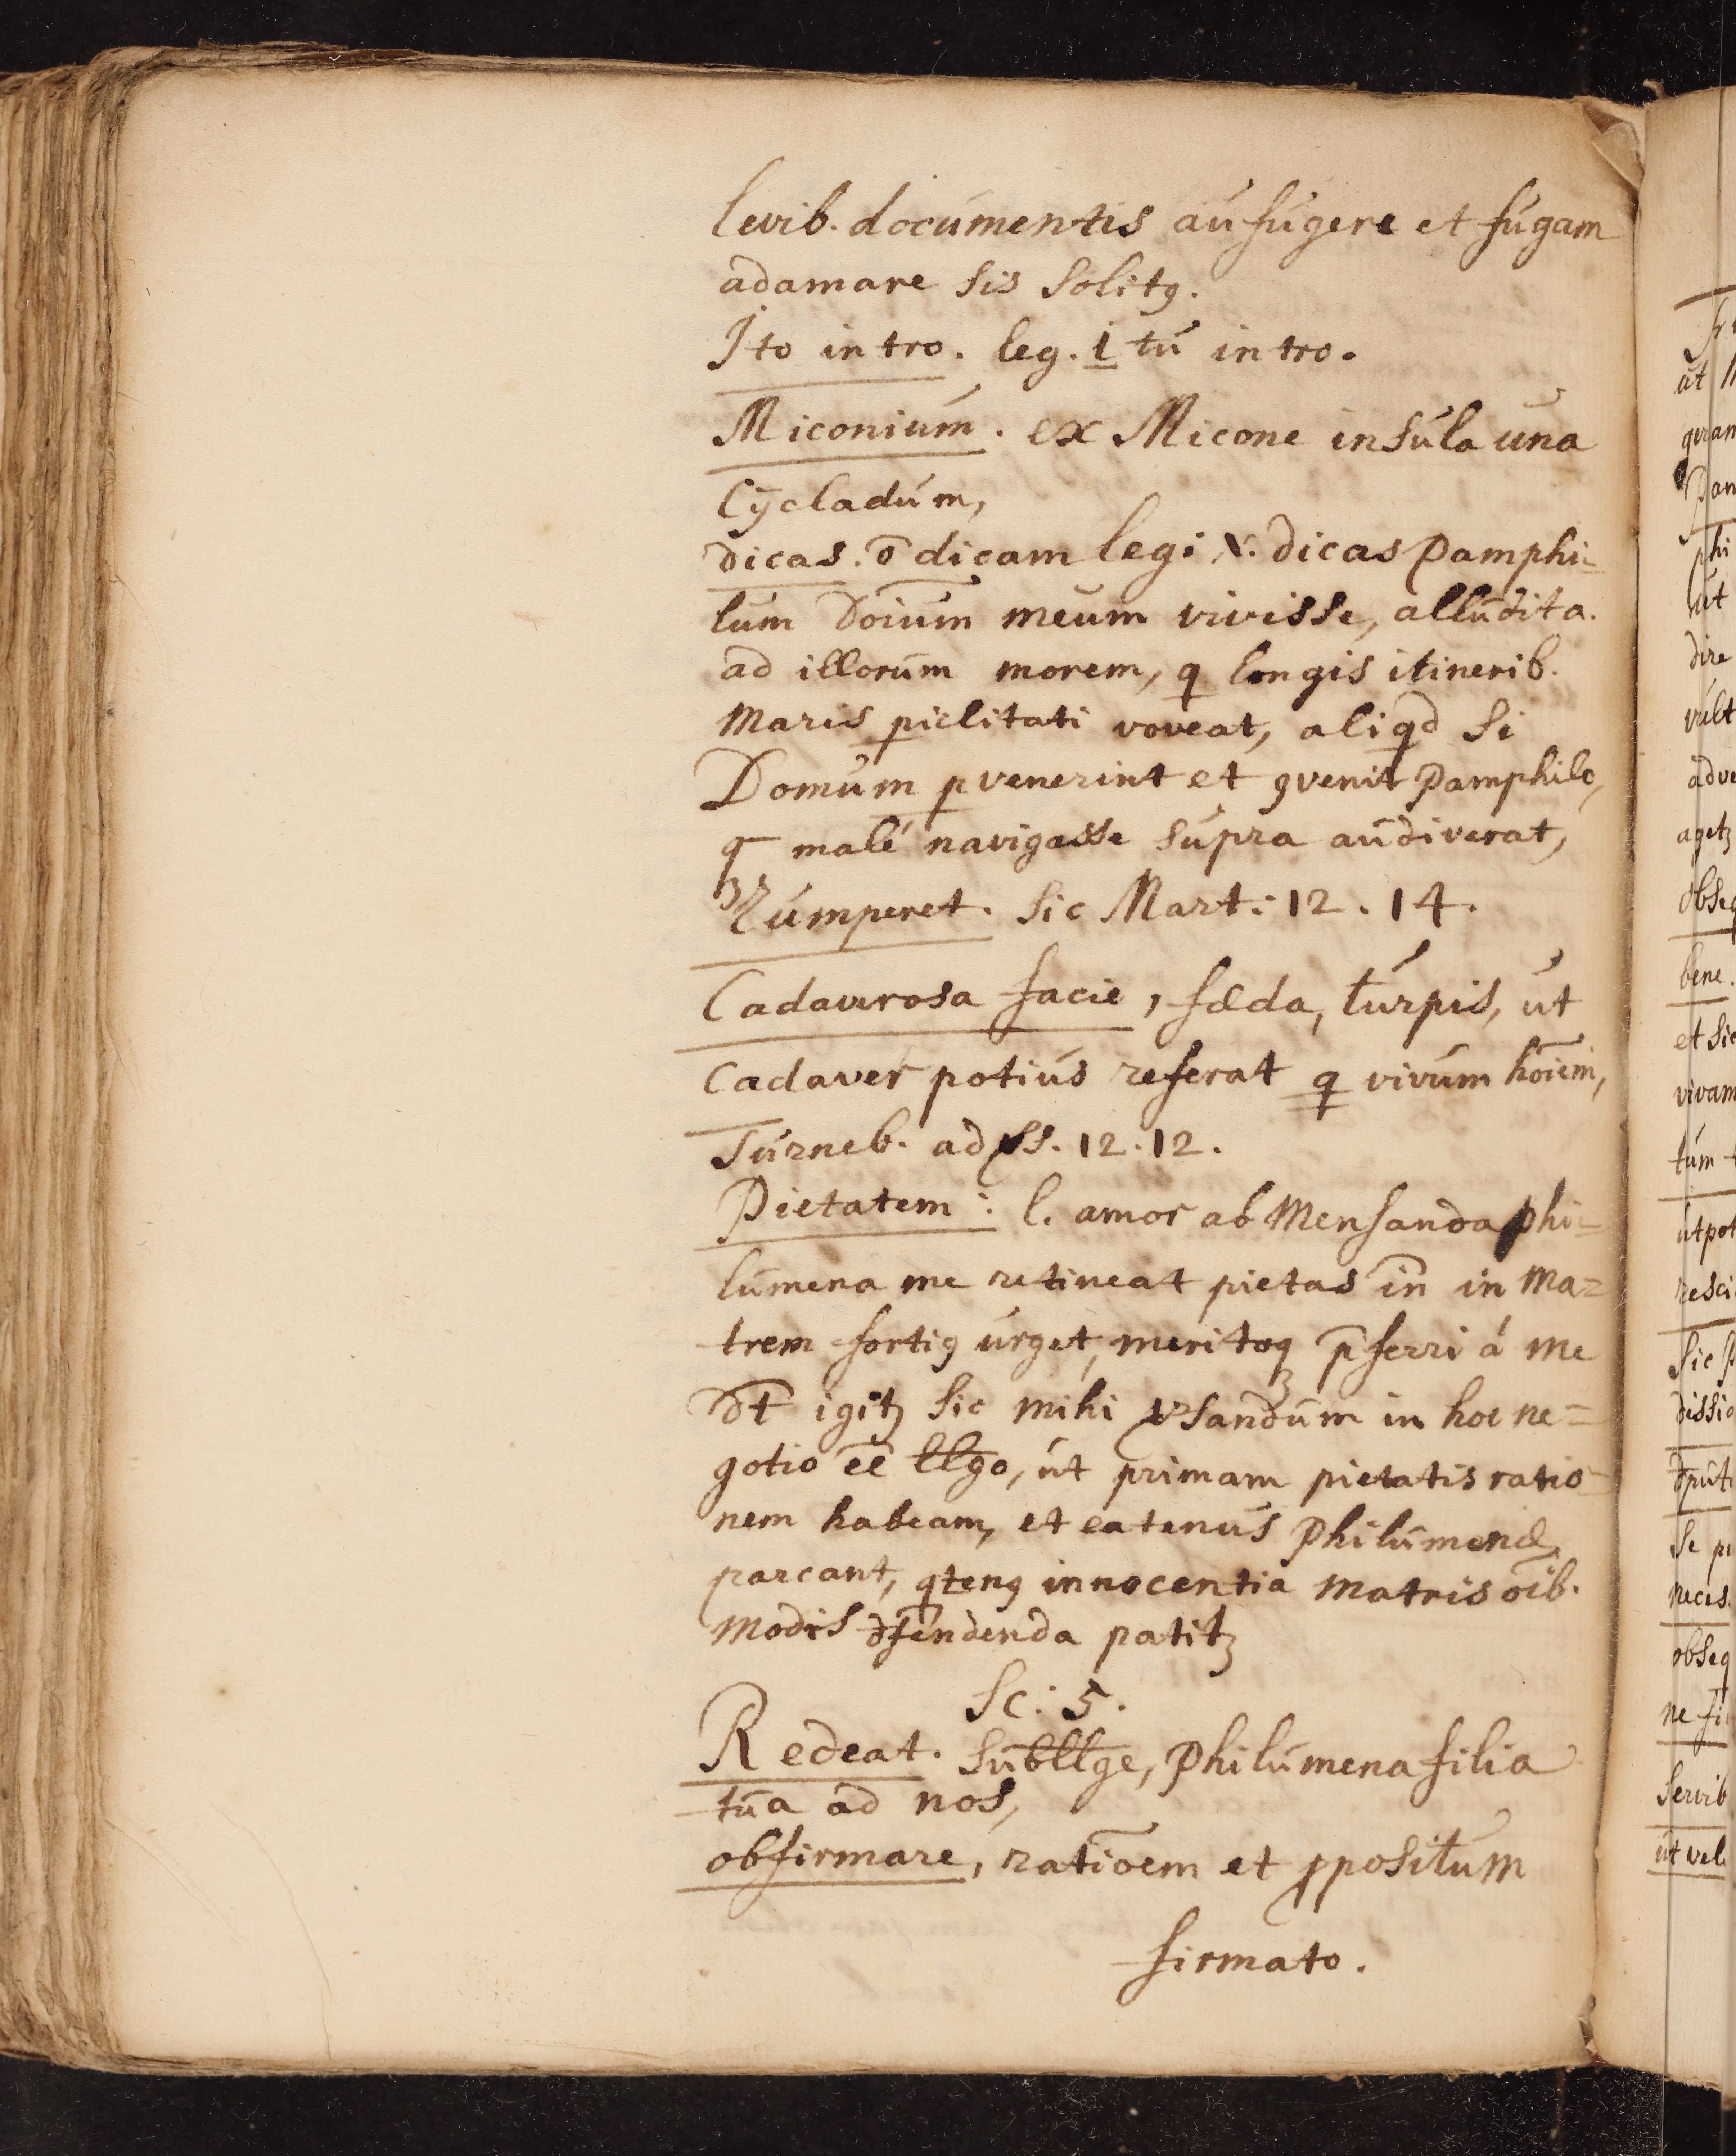 levib. documentis aufugere et fugam
adamare sis solitꝯ.
Ito intro. leg. i tu intro.
Miconium. ex Micone insula una
Cycladum,
dicas. ō dicam legi V. dicas Pamphi-
lum Doium meum vivisse, alludit a.
ad illorum morem, q longis itinerib.
Maris piclitati voveat, aliqd si
Domum pvenerint et ꝯvenit Pamphilo,
q malé navigasse supra audiverat,
Rumperet. Sic Mart: 12. 14.
Cadaverosa facie, fæda, turpis, ut
Cadaver potius referat q vivum hōiem,
Turneb. ad ss. 12. 12.
Pietatem: l. amor ab Mensanda Phi-
lumena me retineat pietas in̄ in Ma-
trem fortiꝯ urget, meritoqꝫ p̄ferri á me
dt̄ igitꝫ sic mihi vsandum in hoc ne-
gotio ēē llgo, ut primam pietatis ratio-
nem habeam, et eatenus Philumenæ
parcant, qtenꝯ innocentia Matris oīb.
Modis dfendenda patitꝫ
Sc: 5.
Redeat. subllge, Philumena filia
tua ad nos,
obfirmare, ratiōem et ꝓpositum
firmato.